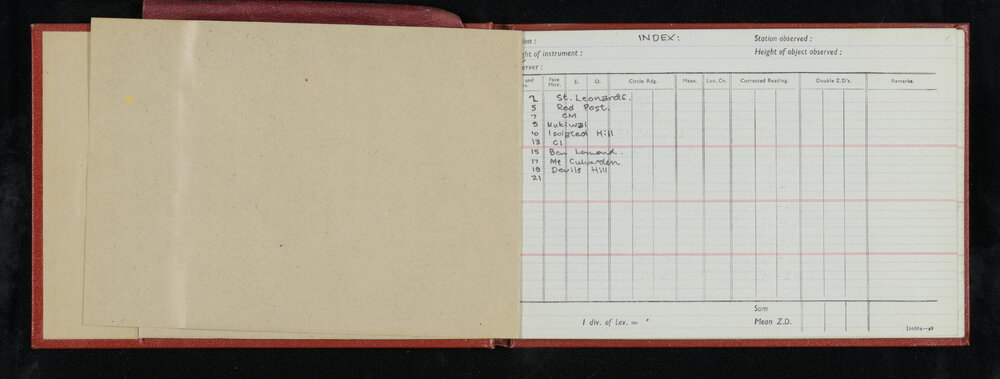 ion : INDEX: Station observed :
ght of instrument : Height of object observed :
erver :
and Face Micr. E. O. Circle Rdg. Mean. Lev. Cn. Corrected Reading. Double Z.D's. Remarks.
2 St. Leonards.
5 Red Post.
7 CM
9
10 Isolated Hill
13 C1
15 Ben Lomond.
17 Mt Culverden
19 Devils Hill
21
Sum
1 div. of Lev. = " Mean Z.D.